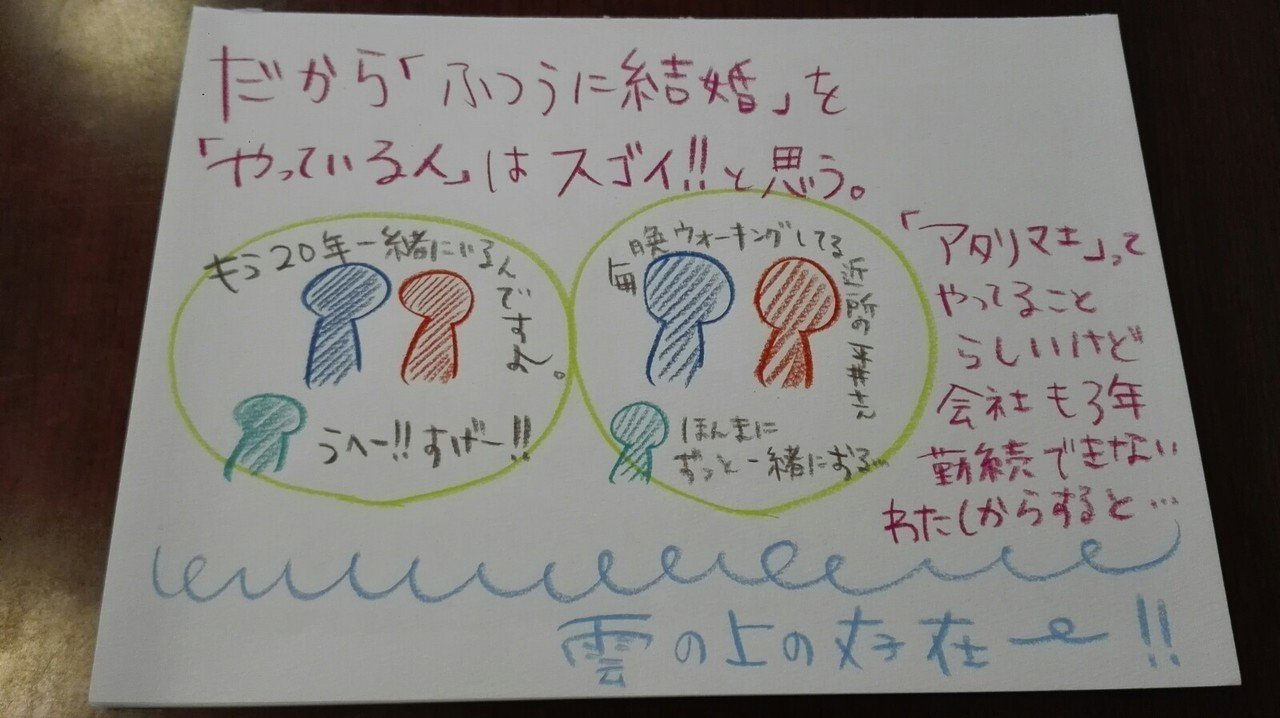 だから「ふつうに結婚」を
「やっている人」はスゴイ!!と思う。
もう20年一緒にいるんですよ。
うへー!!すげー!!
毎晩ウォーキングしてる近所の平井さん
ほんまに
ずっと一緒におる…
「アタリマエ」って
やってること
らしいけど
会社も3年
勤続できない
わたしからすると…
雲の上の存在ー!!